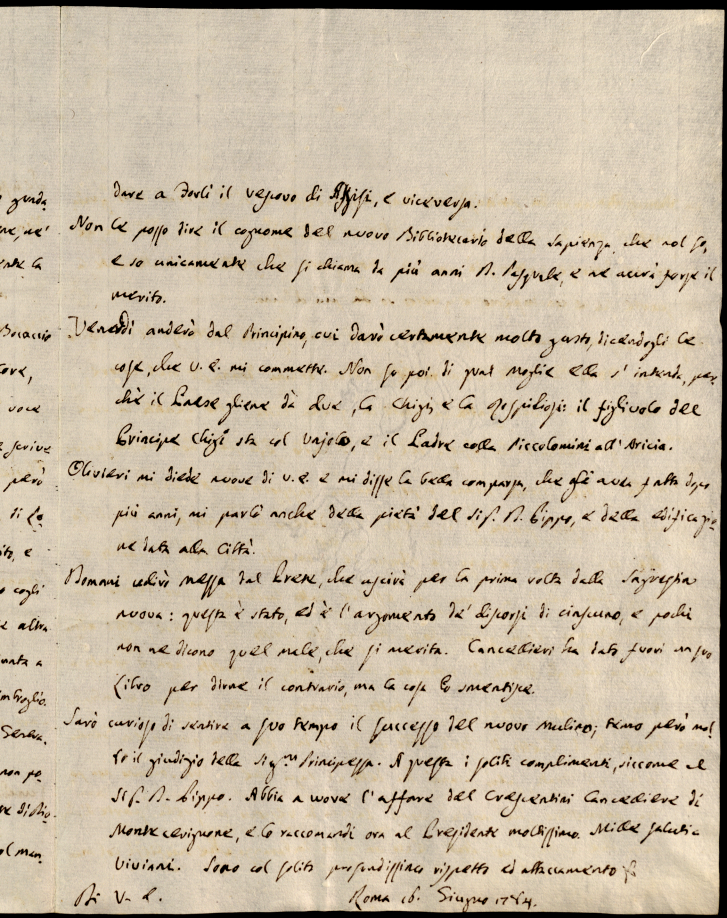 dare a Forlì il vescovo di Assisi, e viceversa.
Non le posso dire il cognome del nuovo Bibliotecario della Sapienza, che nol so,
e so unicamente che si chiama da più anni D. Pasquale, e ne avrà forse il
merito.
Venerdì anderò dal Principino, cui darò certamente molto gusto, dicendogli le
cose, che V. E. mi commette. Non so poi di qual moglie ella s'intenda, per-
chè il Paese gliene dà due, la Chigi, e la Rospigliosi: il figliuolo del
Principe Chigi sta col Vajolo, e il Padre colla Piccolomini all'Aricia.
Olivieri mi diede nuove di V. E. e mi disse la bella comparsa, che gli avea fatta dopo
più anni, mi parlò anche della pietà del Sig. D. Pippo, e della edificazio-
ne data alla Città.
Domani udirò messa dal Prete, che uscirà per la prima volta dalla Sagrestia
nuova: questa è stato, ed è l'argomento de' discorsi di ciascuno, e pochi
non ne dicono quel male, che si merita. Cancellieri ha dato fuori un suo
Libro per dirne il contrario, ma la cosa lo smentisce.
Sarò curioso di sentire a suo tempo il successo del nuovo mulino; temo però mol-
to il giudizio della Sig.ra Principessa. A questa i soliti complimenti, siccome al
Sig. D. Pippo. Abbia a cuore l'affare del Crescentini Cancelliere di
Monte cerignone, e lo raccomandi ora al Presidente moltissimo. Mille saluti a
Viviani. Sono col solito profondissimo rispetto ed attaccamento
Di V. E. Roma 16. Giugno 1784.
o gli
e altra
Genera-
non po-